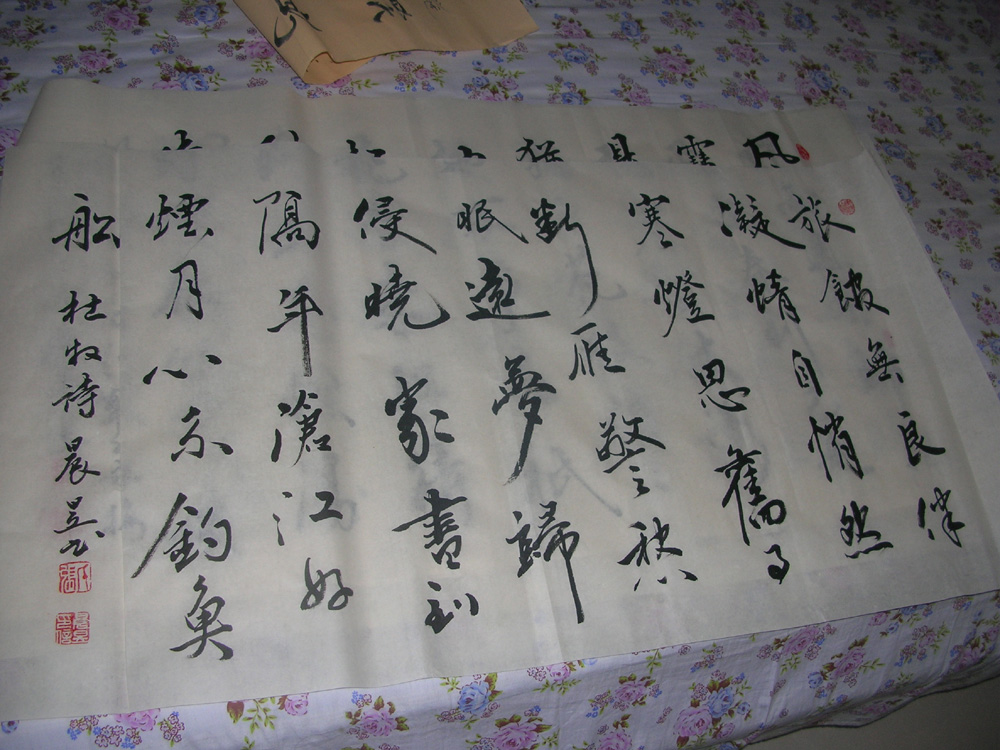 旅館無良伴
凝情自悄然
寒燈思舊事
斷雁警愁
眠遠夢歸
侵曉家書到
隔年滄江好
煙月門系釣魚
船 杜牧詩 晨昱書